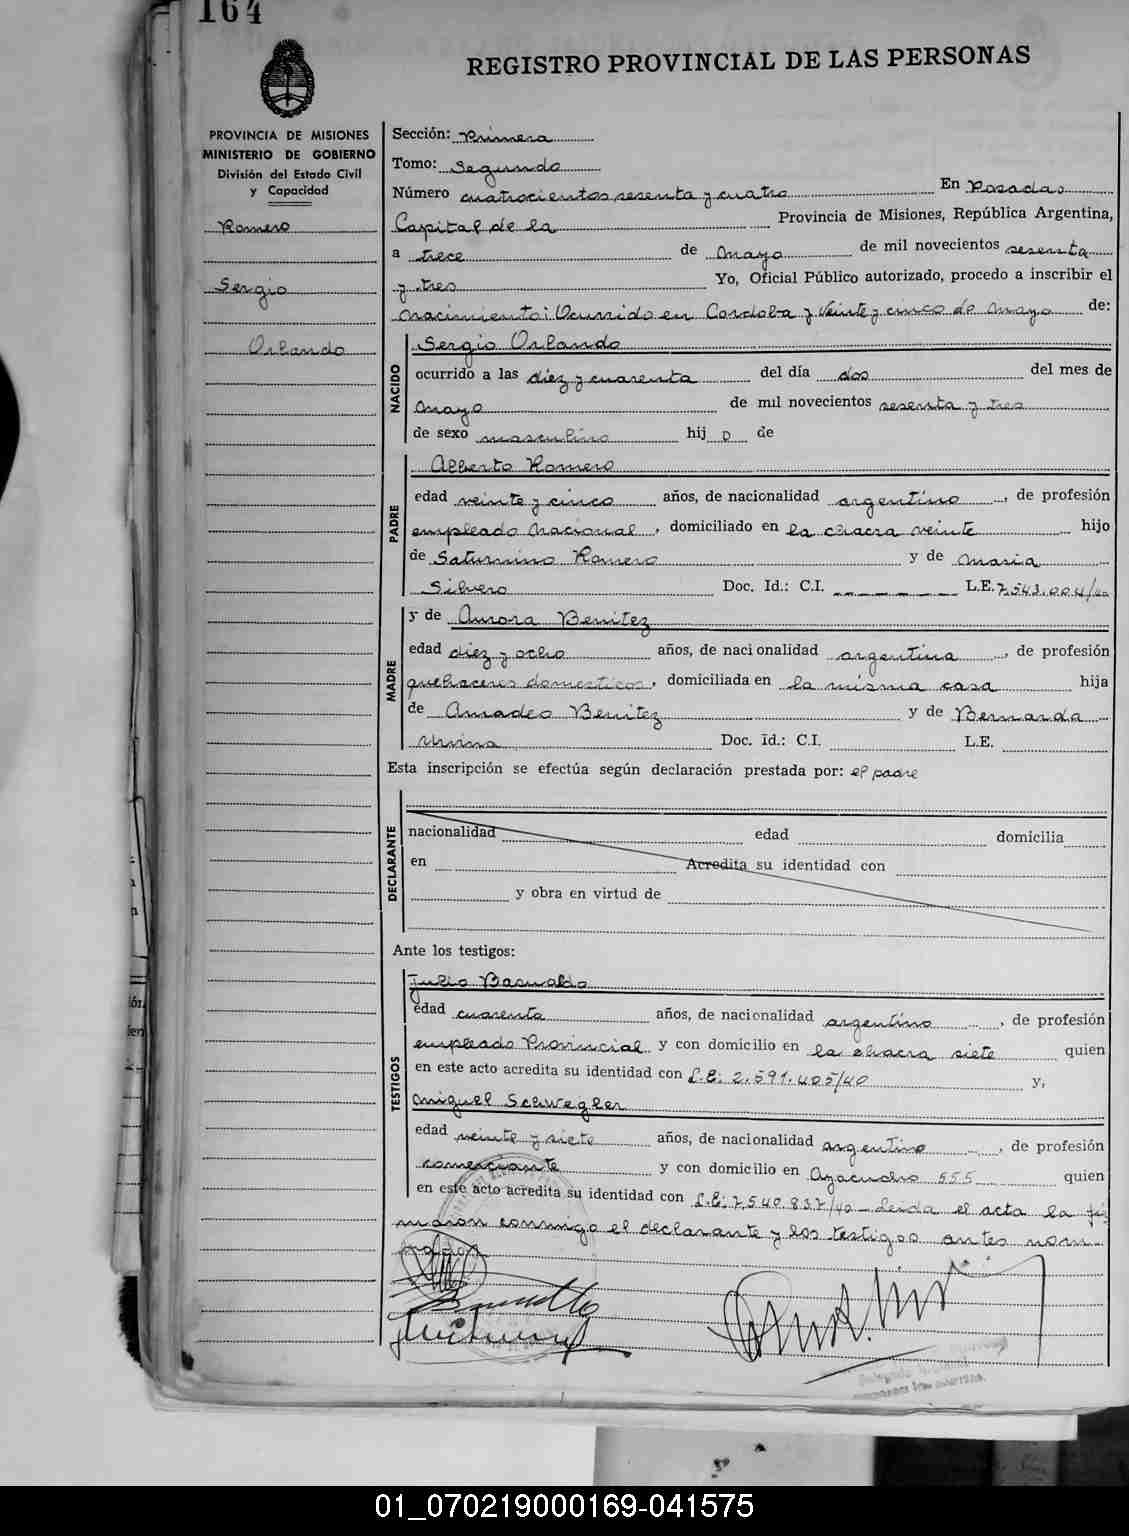 164
REGISTRO PROVINCIAL DE LAS PERSONAS
PROVINCIA DE MISIONES
MINISTERIO DE GOBIERNO
División del Estado Civil
y Capacidad
Romero
Sergio
Orlando
Sección: Primera
Tomo: Segundo
Número cuatrocientos sesenta y cuatro En Posadas
Capital de la Provincia de Misiones, República Argentina,
a trece de mayo de mil novecientos sesenta
y tres Yo, Oficial Público autorizado, procedo a inscribir el
nacimiento: Ocurrido en Cordoba y Veinte y cinco de mayo de:
NACIDO
Sergio Orlando
ocurrido a las diez y cuarenta del día dos del mes de
mayo de mil novecientos sesenta y tres
de sexo masculino hij o de
PADRE
Alberto Romero
edad veinte y cinco años, de nacionalidad argentino, de profesión
empleado nacional, domiciliado en la chacra veinte hijo
de Saturnino Romero y de Maria
Silvero Doc. Id.: C.I. L.E. 7.543.004/40
MADRE
y de Aurora Benitez
edad diez y ocho años, de nacionalidad argentina, de profesión
quehaceres domesticos, domiciliada en la misma casa hija
de Amadeo Benitez y de Bernarda
Doc. Id.: C.I. L.E.
Esta inscripción se efectúa según declaración prestada por: el padre
DECLARANTE
nacionalidad edad domicilia
en Acredita su identidad con
y obra en virtud de
Ante los testigos:
TESTIGOS
Julio Basualdo
edad cuarenta años, de nacionalidad argentino, de profesión
empleado Provincial y con domicilio en la chacra siete quien
en este acto acredita su identidad con L.E: 2.591.405/40 y,
Miguel Schwegler
edad veinte y siete años, de nacionalidad argentino, de profesión
comerciante y con domicilio en Ayacucho 555 quien
en este acto acredita su identidad con L.E: 7.540.837/40 - Leida el acta la fir
maron conmigo el declarante y los testigos antes nom
01_070219000169-041575